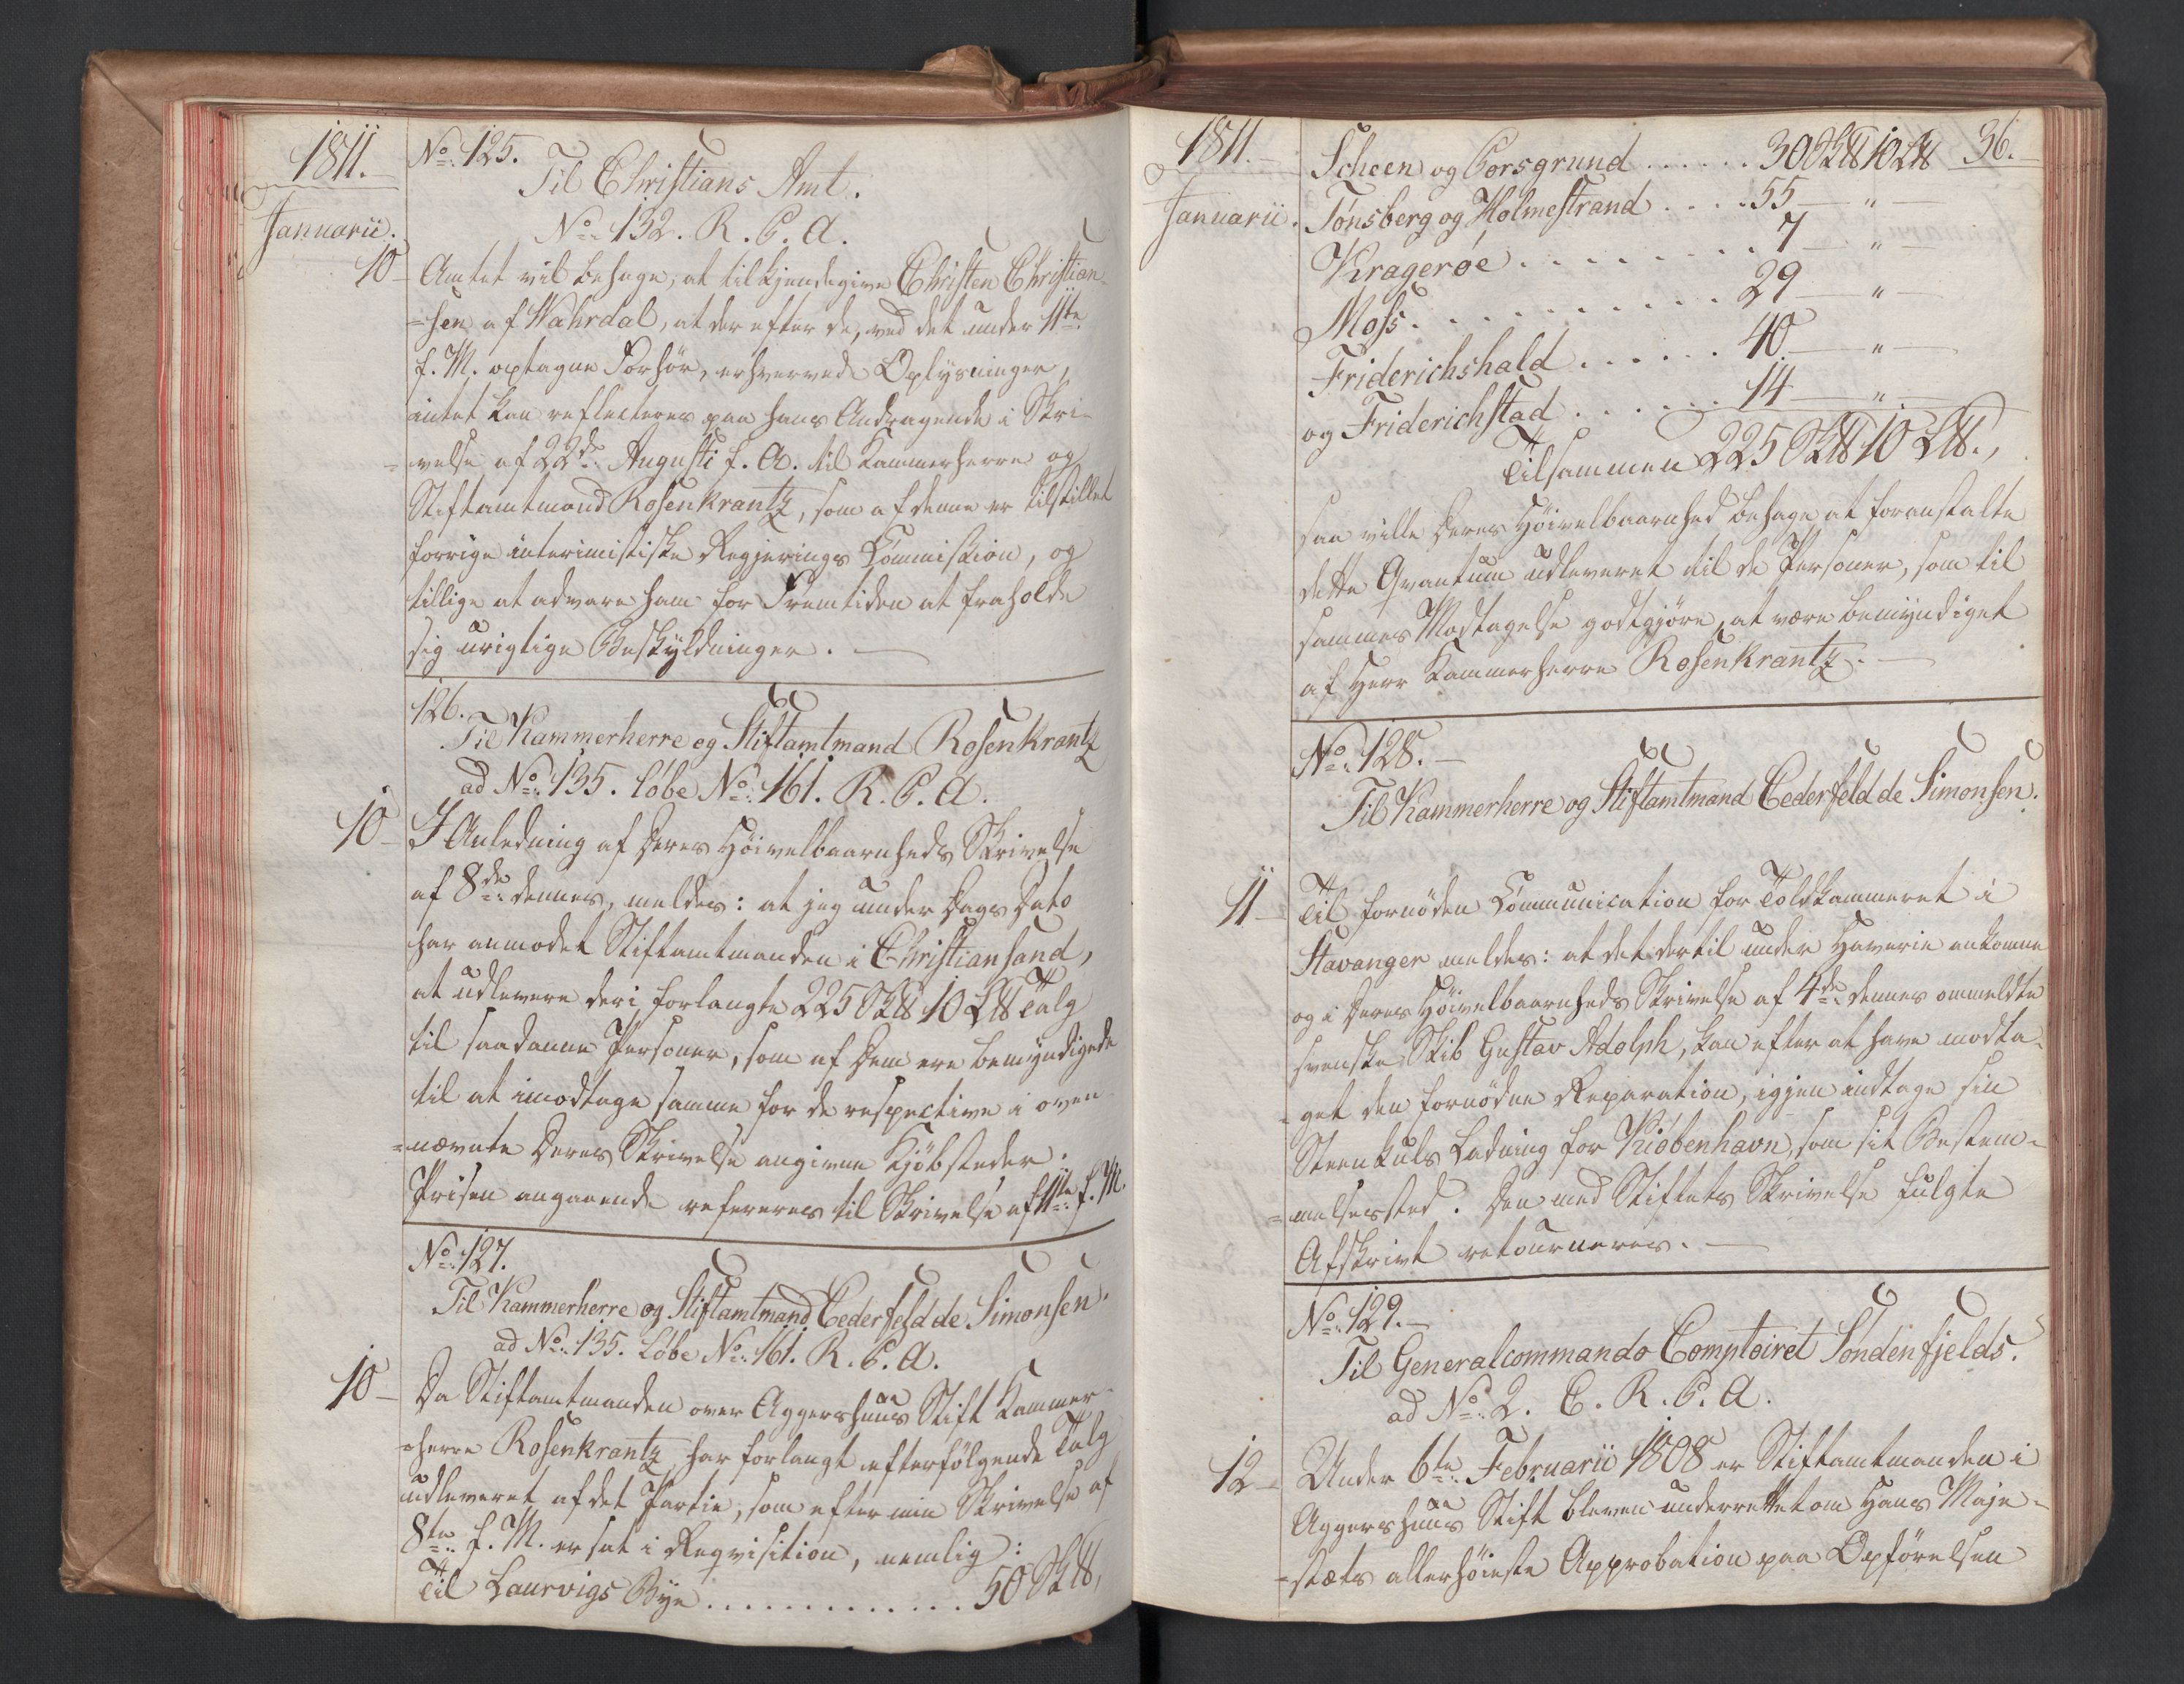 1811.
Januarii.
No. 125.
Til Christians Amt.
No. 132. R. P. A.
10 – Amtet vil behage, at tilkjendegive Christen Christian-
=sen af Wahrdal, at der efter de, ved det under 11te
f. M. optagne Forhør, erhvervede Oplysninger,
intet kan reflecteres paa hans Andragende i Skri-
=velse af 22de Augusti f. A. til Kammerherre og
Stiftamtmand Rosenkrantz, som af denne er tilstillet
forrige interimistiske Regjerings Commission, og
tillige at advare ham for Fremtiden at fraholde
sig urigtige Beskyldninger. —
126.
Til Kammerherre og Stiftamtmand Rosenkrantz
ad No. 135. Løbe No. 161. R. P. A.
10 – I Anledning af Deres Høivelbaarnheds Skrivelse
af 8de dennes, meldes: at jeg under Dags Dato
har anmodet Stiftamtmanden i Christiansand,
at udlevere deri forlangte 225 Sk℔ 10 L℔ Talg
til saadanne Personer, som af Dem ere bemyndigede
til at imodtage samme for de respective i oven-
=nævnte Deres Skrivelse angivne Kjøbsteder.
Prisen angaaende refereres til Skrivelse af 11te f. M.
No. 127.
Til Kammerherre og Stiftamtmand Cederfeld de Simonsen.
ad No. 135. Løbe No. 161. R. P. A.
10 – Da Stiftamtmanden over Aggershuus Stift Kammer-
=herre Rosenkrantz, har forlangt efterfølgende Talg
udleveret af det Partie, som efter min Skrivelse af
8te f. M. er sat i Reqvisition, nemlig:
Til Laurvigs Bye . . . . . . . . . . . . . 50 Sk℔,
1811. –
Januarii.
36. –
Scheen og Porsgrund . . . . . . 30 Sk℔ 10 L℔
Tønsberg og Holmestrand . . . . 55 — " —
Kragerøe . . . . . . . . . 7 — " —
Moss . . . . . . . . . . . 29 — " —
Friderichshald . . . . . . 40 — " —
og Friderichstad . . . . . . 14 — " —
Tilsammen 225 Sk℔ 10 L℔.,
saa ville Deres Høivelbaarnhed behage at foranstalte
dette Qvantum udleveret til de Personer, som til
sammes Modtagelse godtgjøre, at være bemyndiget
af Herr Kammerherre Rosenkrantz. —
No. 128. –
Til Kammerherre og Stiftamtmand Cederfeld de Simonsen.
11 – Til fornøden Communication for Toldkammeret i
Stavanger meldes: at det dertil under Haverie ankomne
og i Deres Høivelbaarnheds Skrivelse af 4de dennes ommeldte
svenske Skib Gustav Adolph, kan efter at have modta-
=get den fornødne Reparation, igjen indtage sin
Steenkuls Ladning for Kiøbenhavn, som sit Bestem-
=melsessted. Den med Stiftets Skrivelse fulgte
Afskrivt retourneres. —
No. 129. –
Til Generalcommando Comptoiret Søndenfjelds.
ad No. 2. C. R. P. A.
12 – Under 6te Februarii 1808 er Stiftamtmanden i
Aggershuus Stift bleven underrettet om Hans Maje-
=stæts allerhøieste Approbation paa Opførelsen